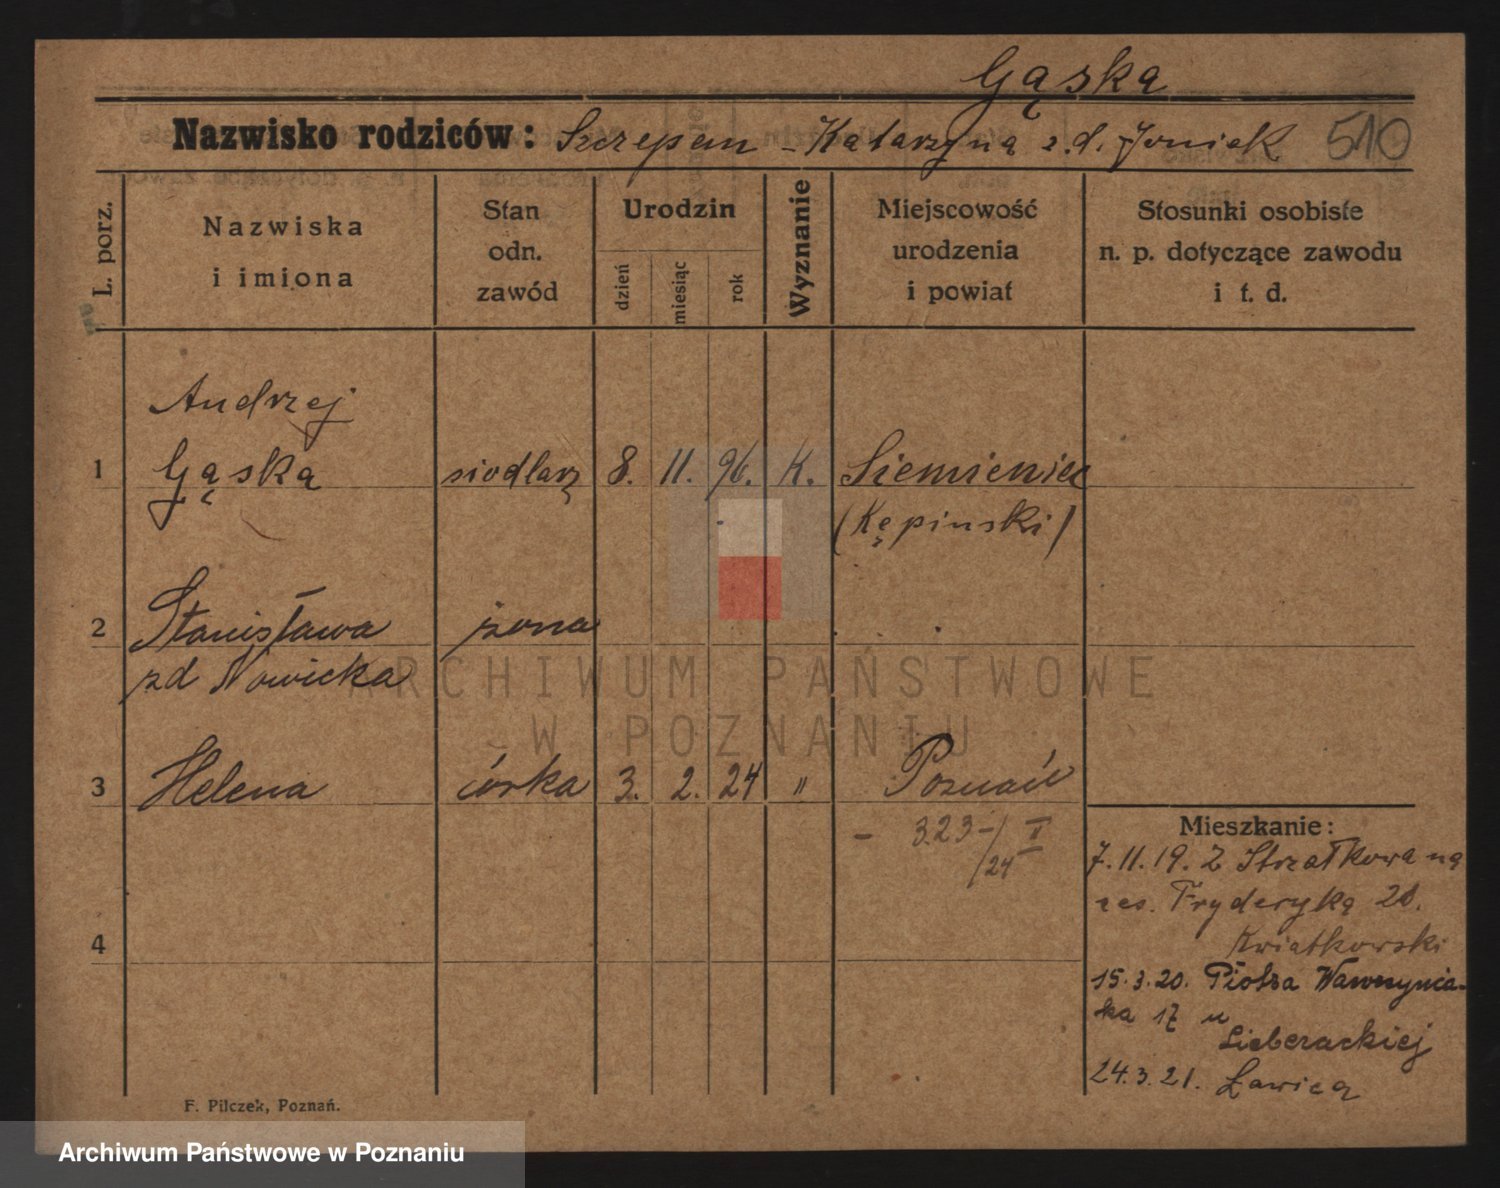 Gąska
Nazwisko rodziców: Szczepan - Katarzyna z.d. Joniak 510
L. porz.
Nazwiska
i imiona
Stan
odn.
zawód
Urodzin
dzień
miesiąc
rok
Wyznanie
Miejscowość
urodzenia
i powiat
Stosunki osobiste
n. p. dotyczące zawodu
i t. d.
Andrzej
1 Gąska siodlarz 8. 11. 96. K. Siemieniec
(Kępinski)
2 Stanisława żona
zd Nowicka
ARCHIWUM PAŃSTWOWE
W POZNANIU
3 Helena córka 3. 2. 24 " Poznań
- 323-/24 II
Mieszkanie:
7.11.19. Z Strzałkowa na
res. Fryderyka 20.
Kwiatkowski
4
15.3.20. Piotra Wawrzynia-
ka 17 u
Lieberackiej
24.3.21. Ławica
F. Pilczek, Poznań.
Archiwum Państwowe w Poznaniu